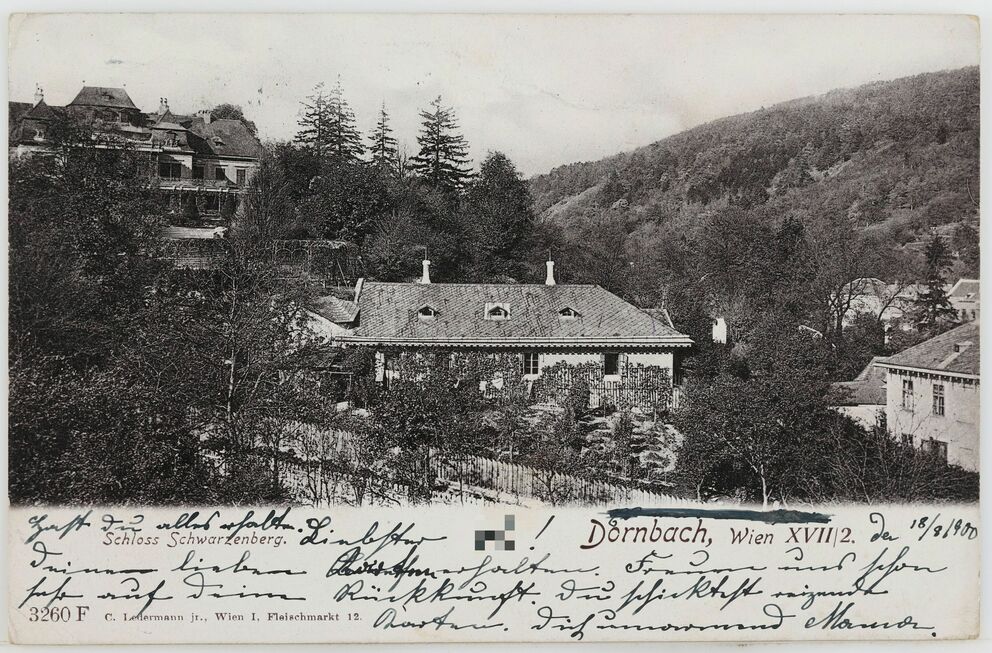 Hast du alles erhalten. Liebster ! Dornbach, Wien XVII/2. den 18/8/900
Schloss Schwarzenberg.
Deinen lieben erhalten. Freuen uns schon
sehr auf deine Rückkunft. Du schicktest reizende
3260 F C. Ledermann jr., Wien I, Fleischmarkt 12. Karten. Dich umarmend Mama.